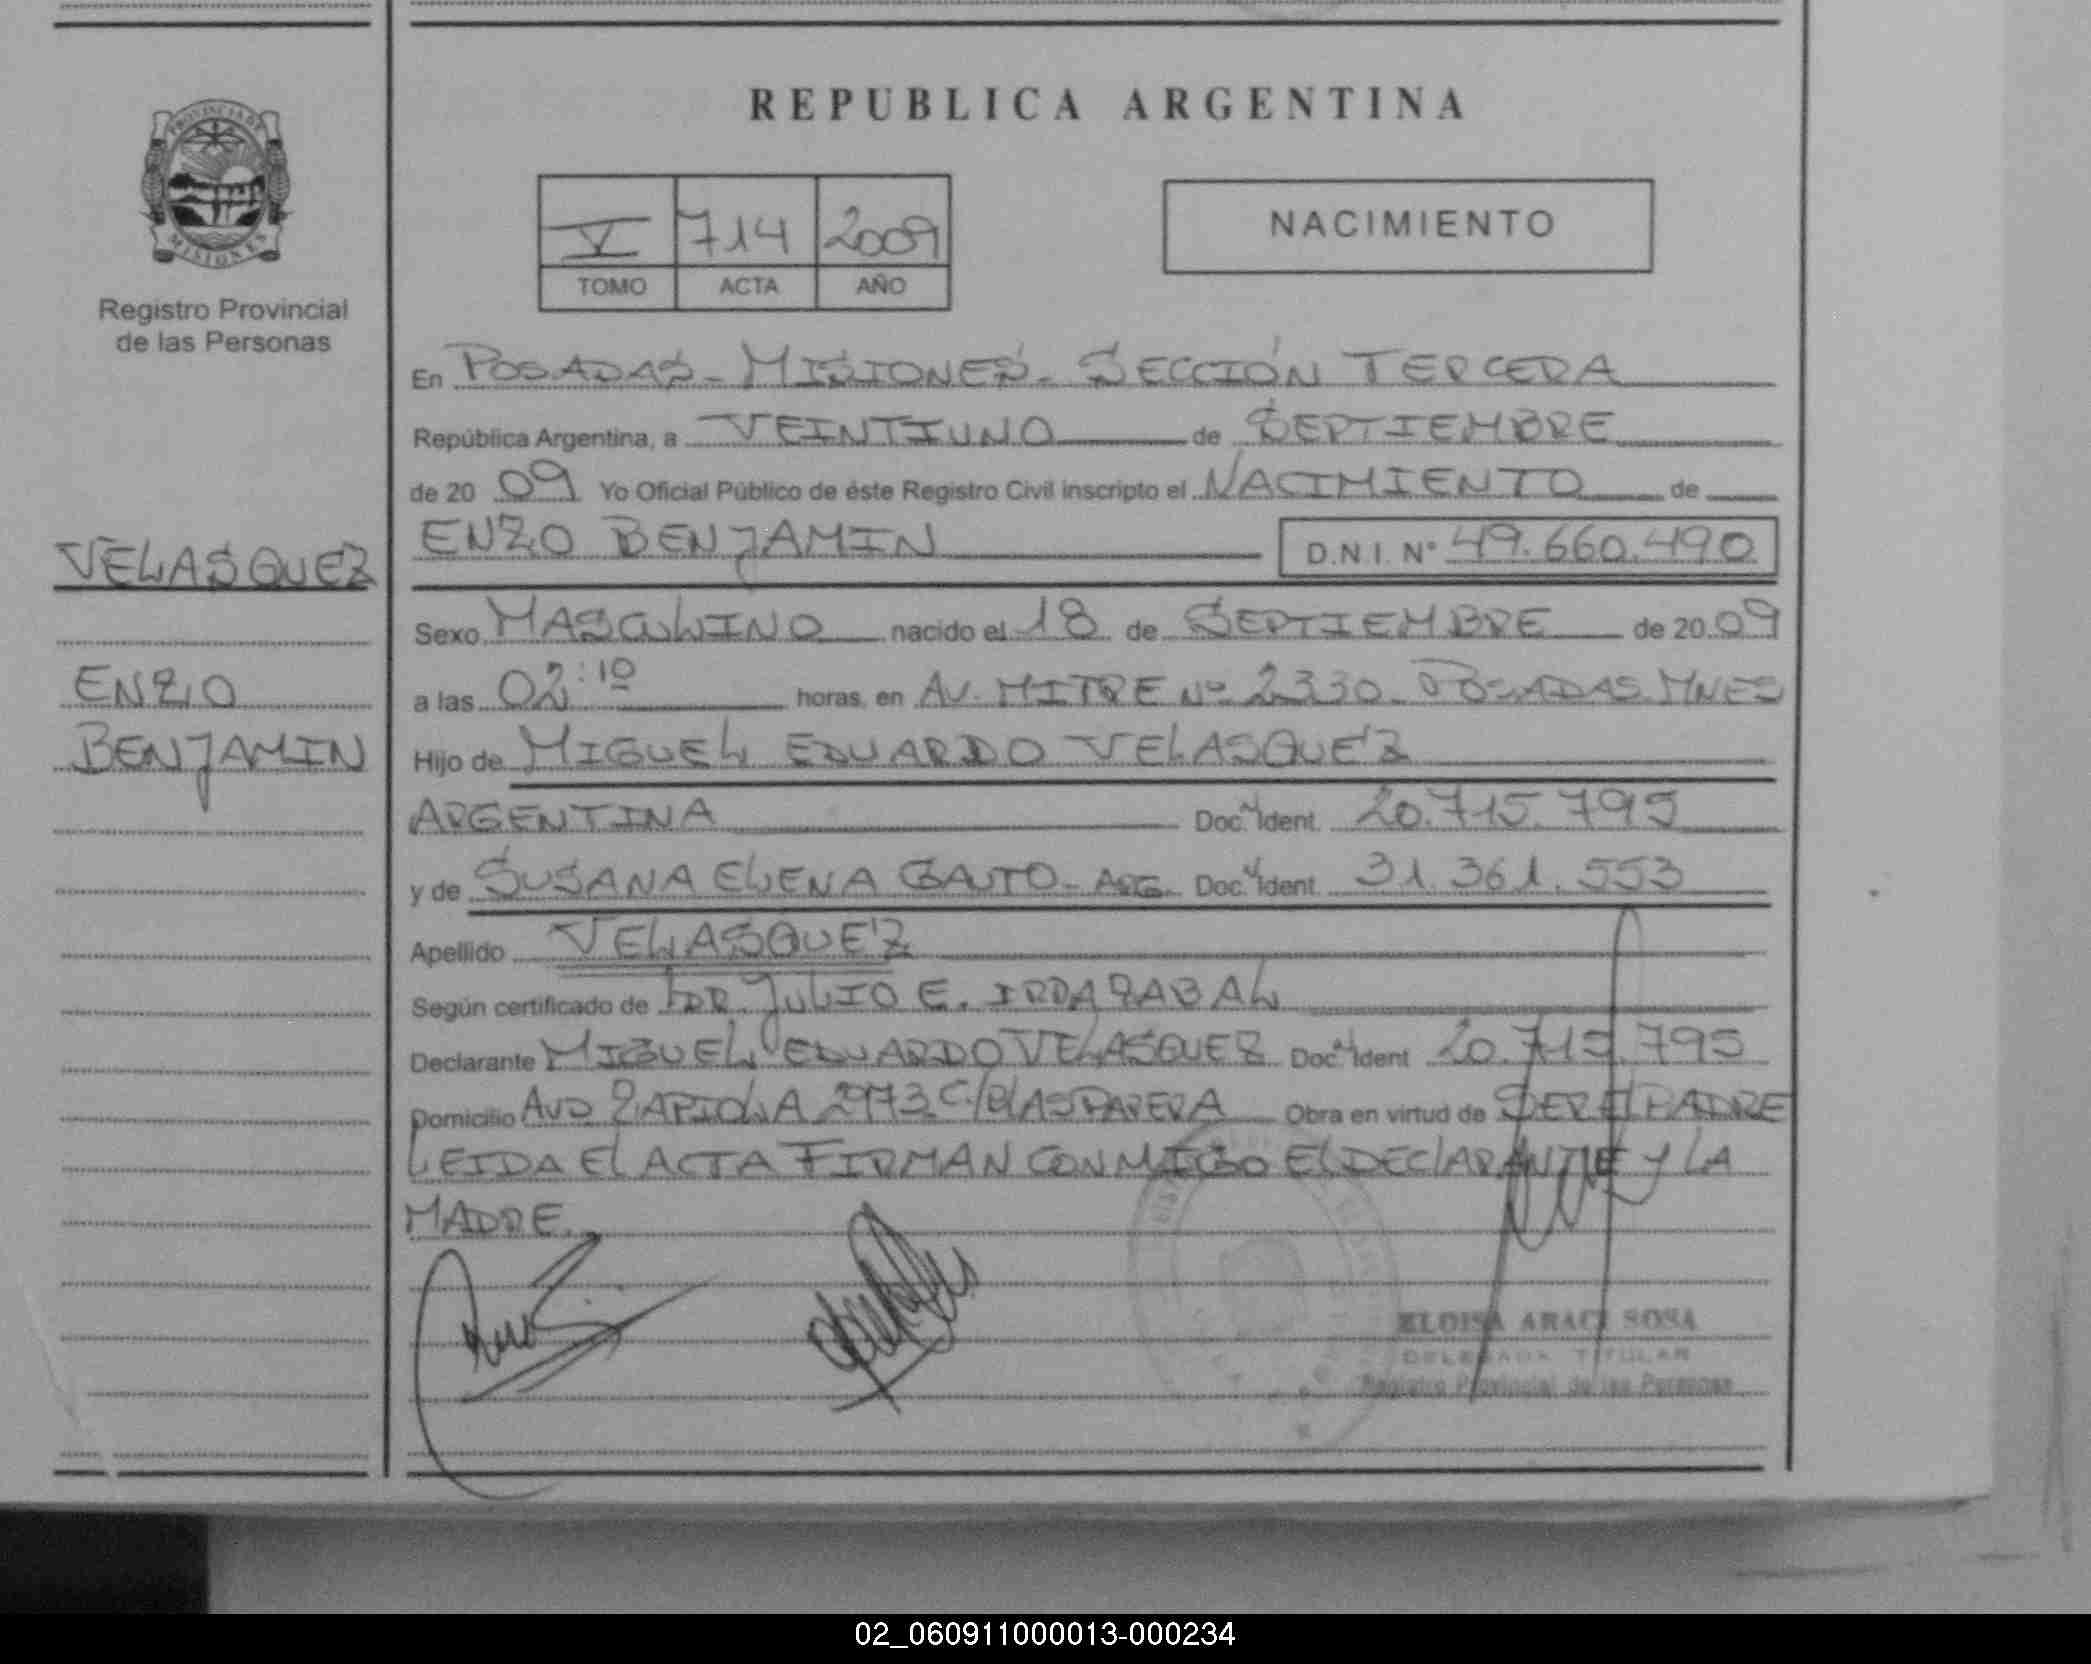 REPUBLICA ARGENTINA
PROVINCIA DE MISIONES
Registro Provincial
de las Personas
V 714 2009
TOMO ACTA AÑO
NACIMIENTO
En POSADAS - MISIONES - SECCIÓN TERCERA
República Argentina, a VEINTIUNO de SEPTIEMBRE
de 20 09 Yo Oficial Público de éste Registro Civil inscripto el NACIMIENTO de
ENZO BENJAMIN D.N.I. Nº 49.660.490
VELASQUEZ
ENZO
BENJAMIN
Sexo MASCULINO nacido el 18 de SEPTIEMBRE de 20 09
a las 02:10 horas, en AV. MITRE Nº 2330 - POSADAS - MNES
Hijo de MIGUEL EDUARDO VELASQUEZ
ARGENTINA Doc. Ident. 20.715.795
y de SUSANA ELENA GAUTO - ARG. Doc. Ident. 31.361.553
Apellido VELASQUEZ
Según certificado de DR. JULIO E. IRRAZABAL
Declarante MIGUEL EDUARDO VELASQUEZ Doc. Ident 20.715.795
Domicilio AVD ZAPIOLA 2973 C/BLAS PARERA Obra en virtud de SER El PADRE
LEIDA El ACTA FIRMAN CONMIGO El DEClARANTE y LA
MADRE.
ELOISA ARACI SOSA
DELEGADA TITULAR
Registro Provincial de las Personas
02_060911000013-000234